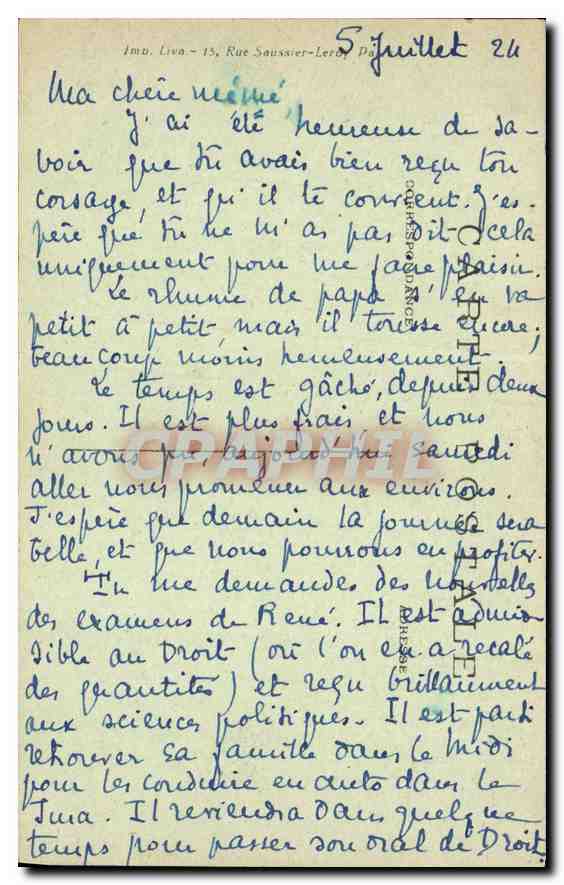 Imp. Liva. - 15, Rue Saussier-Leroy, Pa
5 Juillet 24
Ma chère mémé,
J'ai été heureuse de sa-
voir que tu avais bien reçu ton
corsage, et qu'il te convient. J'es-
père que tu ne m'as pas dit cela
uniquement pour me faire plaisir.
Le rhume de papa s'en va
petit à petit, mais il tousse encore;
beaucoup moins heureusement.
Le temps est gâché, depuis deux
jours. Il est plus frais, et nous
n'avons pu, aujourd'hui samedi
aller nous promener aux environs.
J'espère que demain la journée sera
belle, et que nous pourrons en profiter.
Tu me demandes des nouvelles
des examens de René. Il est admis-
sible au Droit (où l'on en a recalé
des quantités) et reçu brillamment
aux sciences politiques. Il est parti
retrouver sa famille dans le Midi
pour les conduire en auto dans le
Jura. Il reviendra dans quelque
temps pour passer son oral de Droit.
CARTE POSTALE
CORRESPONDANCE
ADRESSE
CPAPHIL